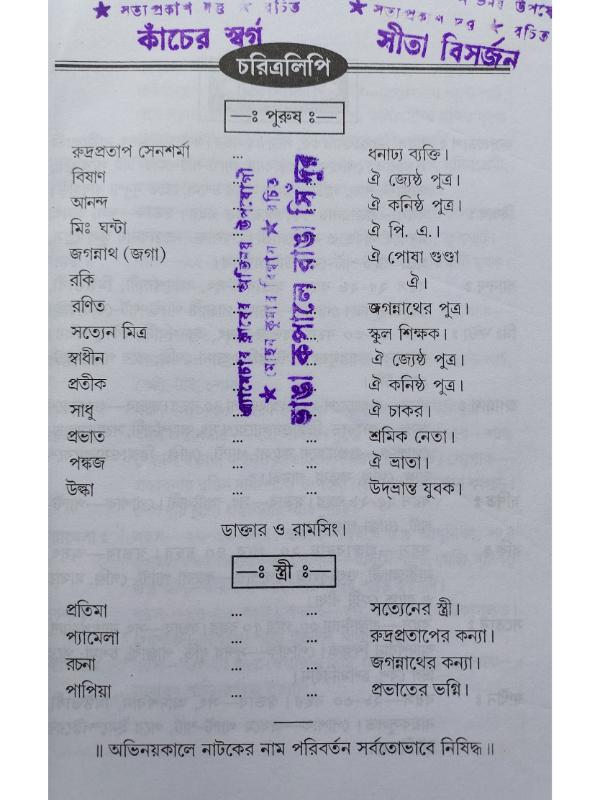 ★ সত্যপ্রকাশ দত্ত ★ রচিত
কাঁচের স্বর্গ
★ সত্যপ্রকাশ দত্ত ★ রচিত
সীতা বিসর্জন
চরিত্রলিপি
—ঃ পুরুষ ঃ—
রুদ্রপ্রতাপ সেনশর্মা ... ... ধনাঢ্য ব্যক্তি।
বিষাণ ঐ জ্যেষ্ঠ পুত্র।
আনন্দ ঐ কনিষ্ঠ পুত্র।
মিঃ ঘন্টা ঐ পি. এ.।
জগন্নাথ (জগা) ঐ পোষা গুণ্ডা
রকি ঐ।
রণিত জগন্নাথের পুত্র।
সত্যেন মিত্র স্কুল শিক্ষক।
স্বাধীন ঐ জ্যেষ্ঠ পুত্র।
প্রতীক ঐ কনিষ্ঠ পুত্র।
সাধু ঐ চাকর।
প্রভাত ... ... শ্রমিক নেতা।
পঙ্কজ ... ... ঐ ভ্রাতা।
উল্কা ... ... উদ্‌ভ্রান্ত যুবক।
ডাক্তার ও রামসিং।
—ঃ স্ত্রী ঃ—
প্রতিমা ... ... সত্যেনের স্ত্রী।
প্যামেলা ... ... রুদ্রপ্রতাপের কন্যা।
রচনা ... ... জগন্নাথের কন্যা।
পাপিয়া ... ... প্রভাতের ভগ্নি।
॥ অভিনয়কালে নাটকের নাম পরিবর্তন সর্বতোভাবে নিষিদ্ধ ॥
এ্যামেচার ক্লাবের অভিনয় উপযোগী
★ মোহন কুমার বিশ্বাস ★ রচিত
ভাঙা কপালে রাঙা সিঁদুর